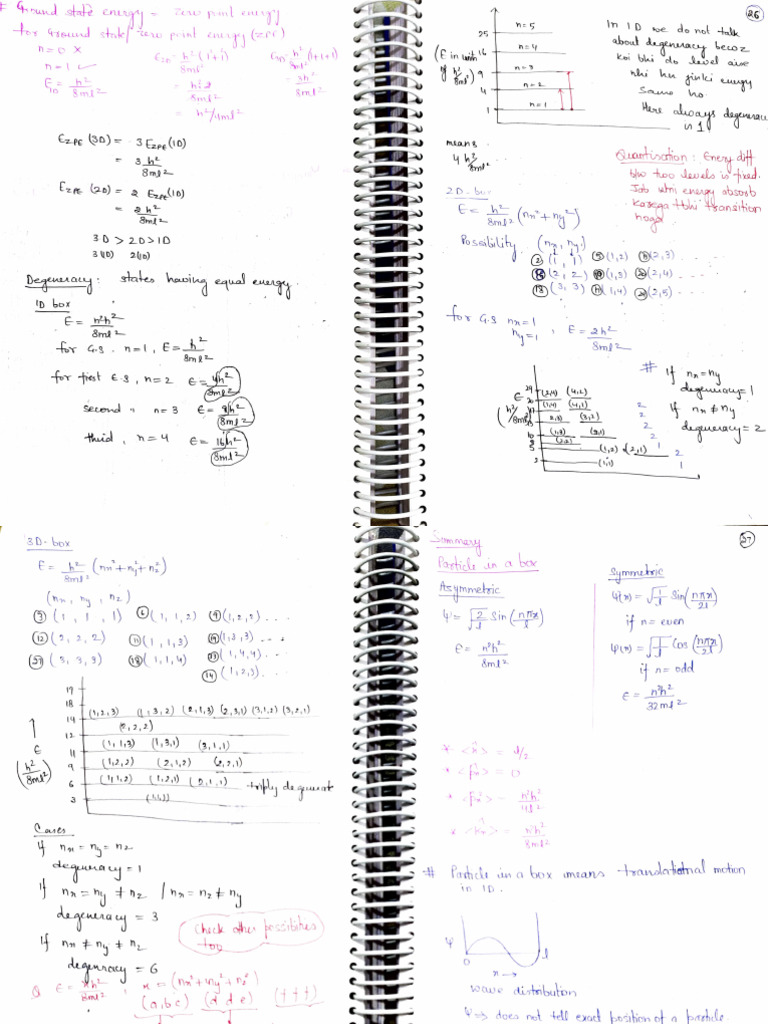 # Ground state energy = zero point energy
for Ground state/zero point energy (ZPE)
n=0 ×
n=1 ✓
E1D = h²/8ml²
E2D = h²/8ml² (1²+1²)
= h²·2/8ml²
= h²/4ml²
E3D = h²/8ml² (1+1+1)
= 3h²/8ml²
EZPE (3D) = 3 EZPE (1D)
= 3 h²/8ml²
EZPE (2D) = 2 EZPE (1D)
= 2 h²/8ml²
3D > 2D > 1D
3(1D) 2(1D)
Degeneracy: states having equal energy
1D box
E = n²h²/8ml²
for G.S, n=1, E = h²/8ml²
for first E.S, n=2 E = 4h²/8ml²
second " n=3 E = 9h²/8ml²
third, n=4 E = 16h²/8ml²
26
(E in unit of h²/8ml²)
25 n=5
16 n=4
9 n=3
4 n=2
1 n=1
In 1D we do not talk
about degeneracy becoz
koi bhi do level aise
nhi hu jinki energy
same ho.
Here always degeneracy
is 1
means
4h²/8ml²
Quantisation: Energy diff
b/w two levels is fixed.
Job utni energy absorb
karega tbhi transition
hoga
2D-box
E = h²/8ml² (nx²+ny²)
Possibility (nx, ny)
② (1, 1) ⑤ (1,2) ⑬ (2,3) ....
⑧ (2, 2) ⑩ (1,3) ⑳ (2,4) ....
⑱ (3, 3) ⑰ (1,4) (2,5) ....
for G.S nx=1
ny=1, E = 2h²/8ml²
E
(h²/8ml²)
(2,4) (4,2) 2
(1,4) (4,1) 2
(2,3) (3,2) 2
(1,3) (3,1) 2
(2,2) 1
(1,2) (2,1) 2
(1,1) 1
# If nx=ny
degeneracy=1
If nx≠ny
degeneracy=2
3D-box
E = h²/8ml² (nx²+ny²+nz²)
(nx, ny, nz)
③ (1, 1, 1) ⑥ (1, 1, 2) ⑨ (1,2,2) ....
⑫ (2, 2, 2) ⑪ (1, 1, 3) ⑲ (1,3,3) ....
㉗ (3, 3, 3) ⑱ (1, 1, 4) ㉝ (1,4,4) ....
⑭ (1,2,3) .
↑
E
(h²/8ml²)
19
18
14 (1,2,3) (1,3,2) (2,1,3) (2,3,1) (3,1,2) (3,2,1)
12 (2,2,2)
11 (1,1,3) (1,3,1) (3,1,1)
9 (1,2,2) (2,1,2) (2,2,1)
6 (1,1,2) (1,2,1) (2,1,1) triply degenerat
3 (1,1,1)
Cases
If nx = ny = nz
degeneracy = 1
If nx = ny ≠ nz / nx = nz ≠ ny
degeneracy = 3
If nx ≠ ny ≠ nz
degeneracy = 6
Check other possibilities
too
Q E = xh²/8ml², x = (nx²+ny²+nz²)
(a,b,c) (d d e) (f f f)
27
Summery
Particle in a box
Asymmetric
ψ = √2/l Sin(nπx/l)
E = n²h²/8ml²
Symmetric
ψ(x) = √1/l Sin(nπx/2l)
if n= even
ψ(x) = √1/l Cos(nπx/2l)
if n= odd
E = n²h²/32ml²
* <x̂> = l/2
* <p̂x> = 0
* <p̂x²> = n²h²/4l²
* <k̂x> = n²h²/8ml²
# Particle in a box means translational motion
in 1D.
ψ
0 l
x →
wave distribution
ψ ⇒ does not tell exact position of a particle